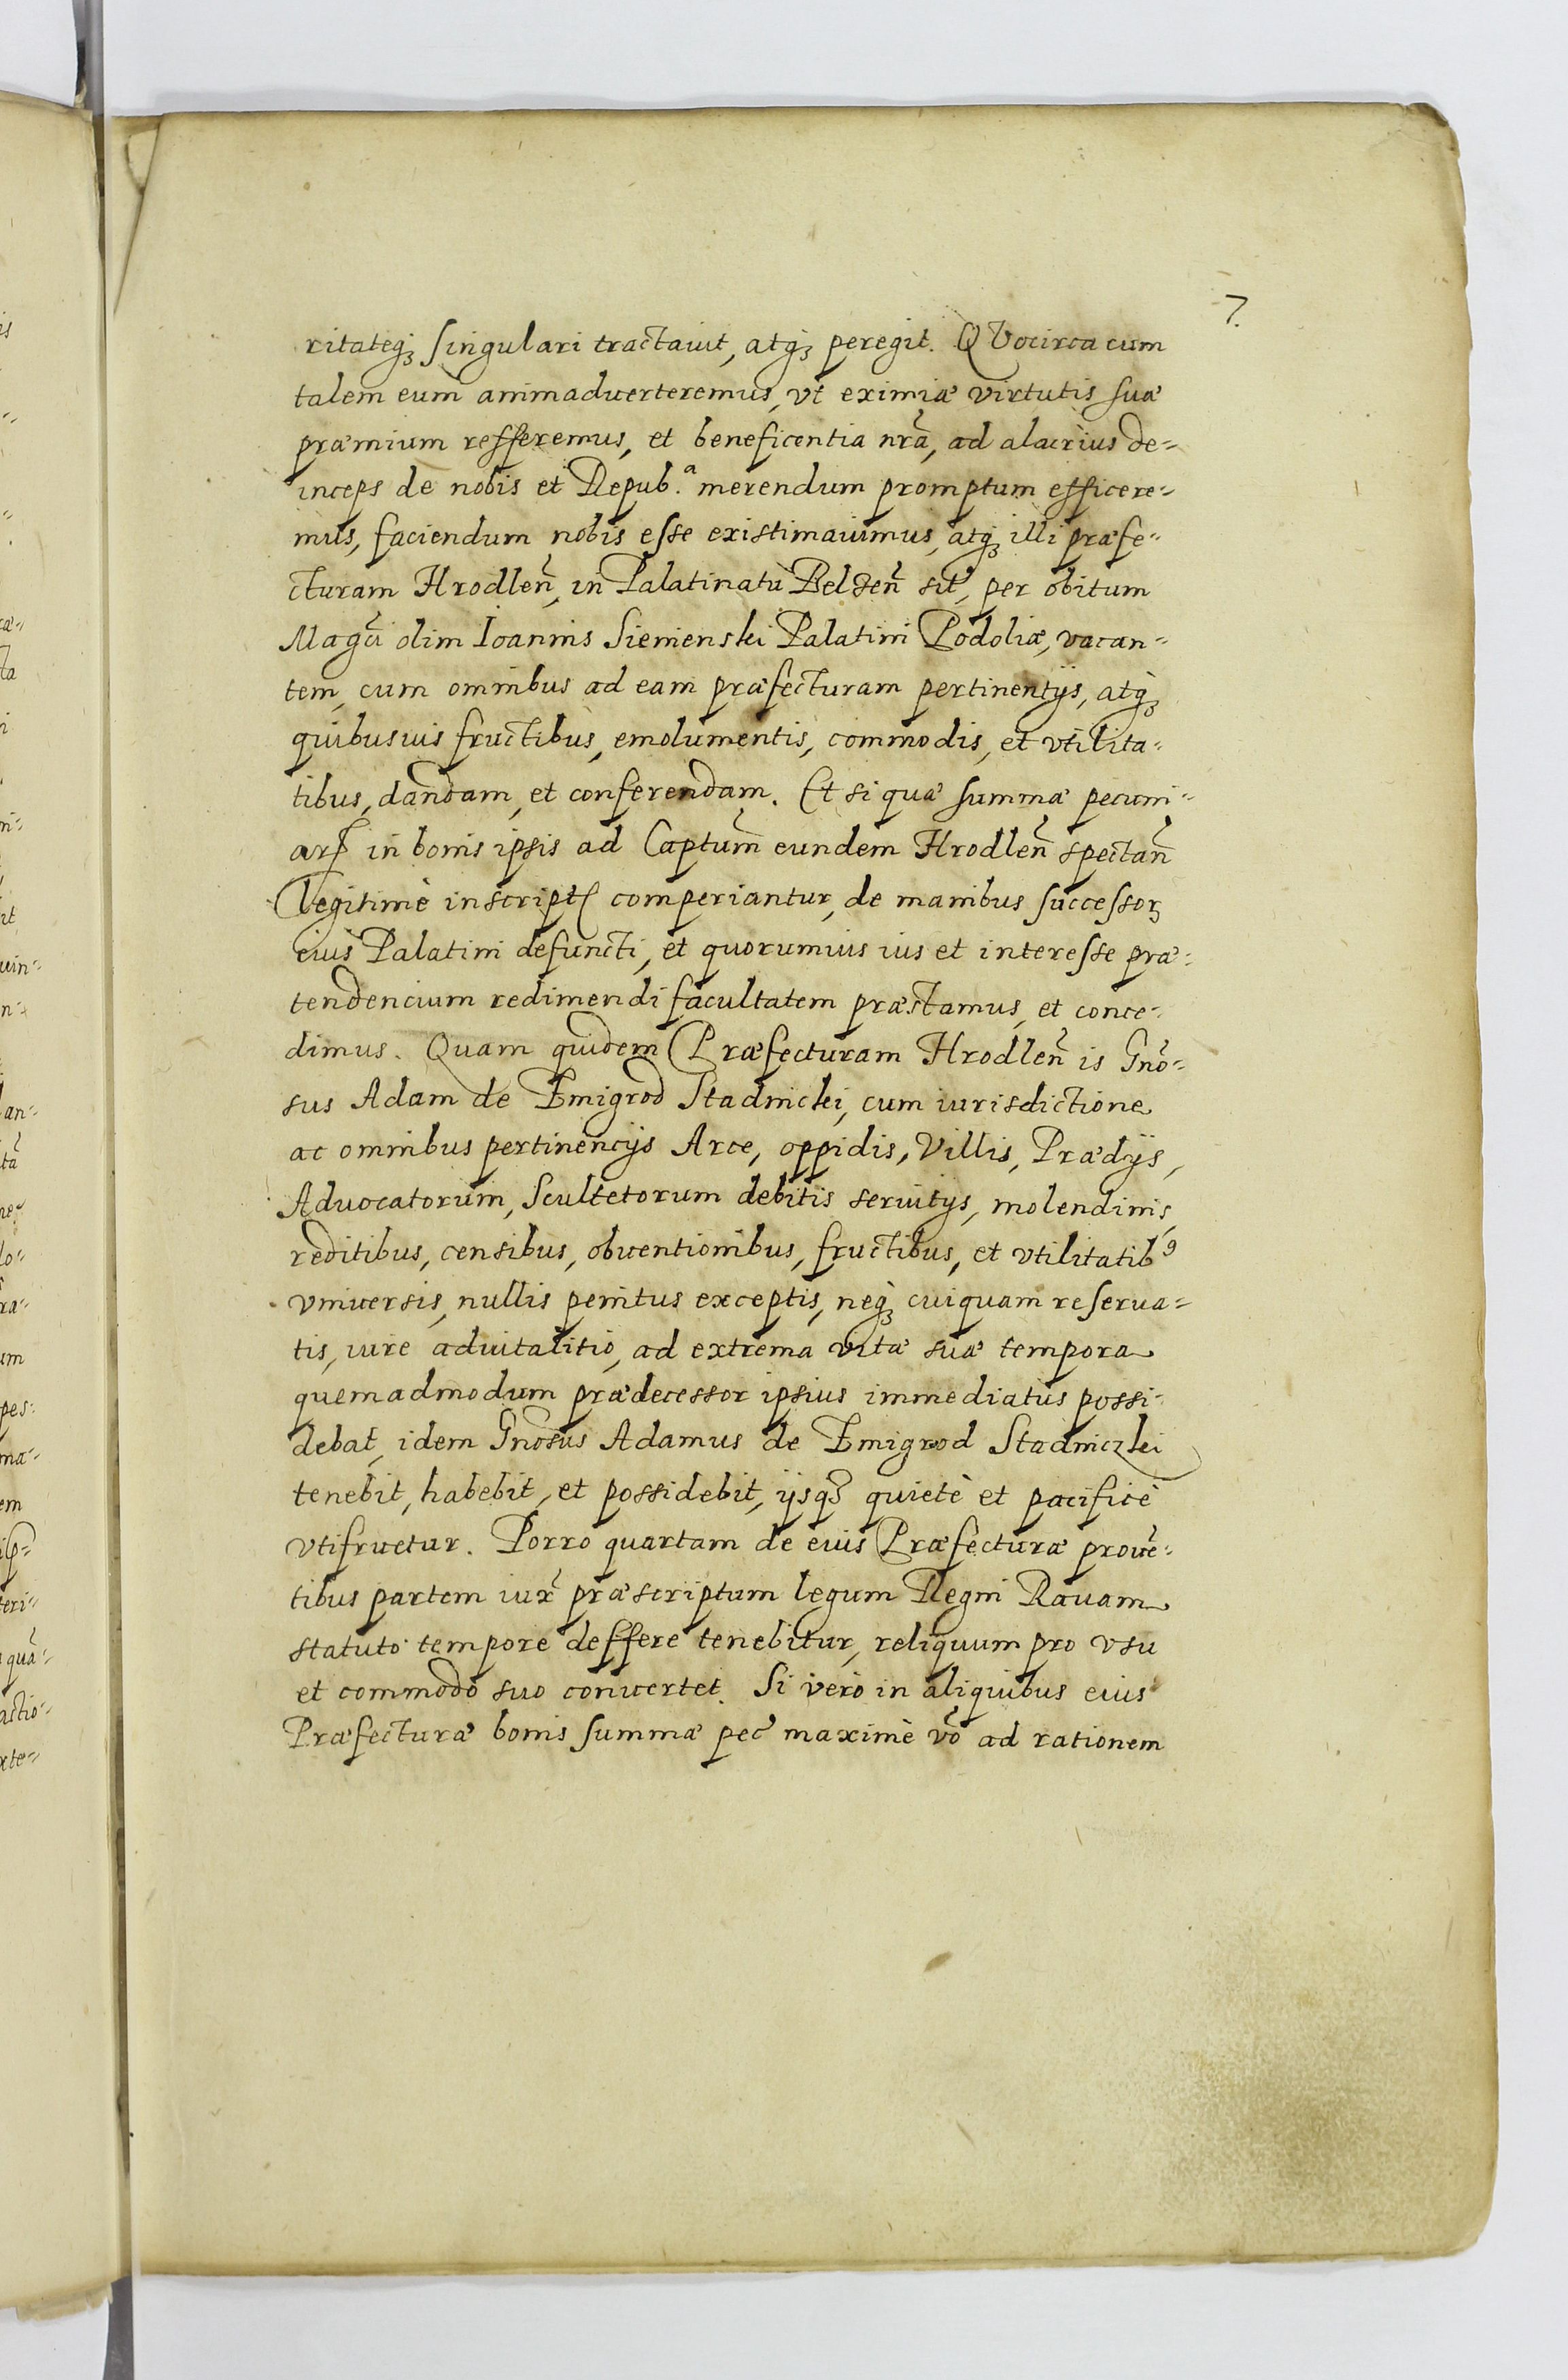 7.
ritateq₃ singulari tractauit, atq₃ peregit. QVocirca cum
talem eum animaduerteremus, vt eximiæ virtutis suæ
præmium refferemus, et beneficentia nrã, ad alacrius de-
inceps de nobis et Repub.ª merendum promptum efficere-
mus, faciendum nobis esse existimauimus, atq₃ illi præfe-
cturam Hrodleñ, in Palatinatu Belzeñ sit, per obitum
Magci olim Ioannis Sienienski Palatini Podoliæ, vacan-
tem, cum omnibus ad eam præfecturam pertinentijs, atq₃
quibusuis fructibus, emolumentis, commodis, et vtilita-
tibus, dandam, et conferendam. Et si quæ summæ pecuni-
arꝝ in bonis ipsis ad Captum̃ eundem Hrodleñ spectañ
legitimè inscript comperiantur, de manibus successorꝝ
eius Palatini defuncti, et quorumuis ius et interesse præ-
tendencium redimendi facultatem præstamus, et conce-
dimus. Quam quidem Præfecturam Hrodleñ is Gnõ-
sus Adam de Zmigrod Stadnicki, cum iurisdictione
ac omnibus pertinencijs Arce, oppidis, Villis, Prædijs,
Aduocatorum, Scultetorum debitis seruitijs, molendinis,
reditibus, censibus, obuentionibus, fructibus, et vtilitatibꝰ
vniuersis, nullis penitus exceptis, neq₃ cuiquam reserua-
tis, iure aduitalitio, ad extrema vitæ suæ tempora
quemadmodum prædecessor ipsius immediatus possi-
debat, idem Gnõsus Adamus de Zmigrod Stadniczki
tenebit, habebit, et possidebit, ijsq₃ quietè et pacificè
vtifruetur. Porro quartam de eius Præfecturæ prouẽ-
tibus partem iux̃ præscriptum legum Regni Rauam
statuto tempore deffere tenebitur, reliquum pro vsu
et commodo suo conuertet. Si verò in aliquibus eius
Præfecturæ bonis summæ pec̃ maximè võ ad rationem